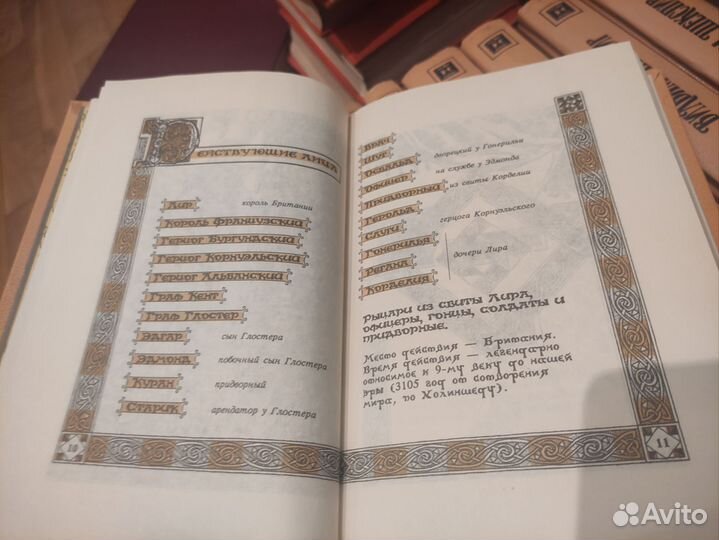 Действующие лица
Лир король Британии
Король Французский
Герцог Бургундский
Герцог Корнуэльский
Герцог Альбанский
Граф Кент
Граф Глостер
Эдгар сын Глостера
Эдмонд побочный сын Глостера
Куран придворный
Старик арендатор у Глостера
10
Врач
Шут
Освальд дворецкий у Гонерильи
Офицер на службе у Эдмонда
Придворный из свиты Корделии
Герольд
Слуги герцога Корнуэльского
Гонерилья
Регана дочери Лира
Корделия
Рыцари из свиты Лира,
офицеры, гонцы, солдаты и
придворные.
Место действия — Британия.
Время действия — легендарно
относимое к 9-му веку до нашей
эры (3105 год от сотворения
мира, по Холиншеду).
11
Avito